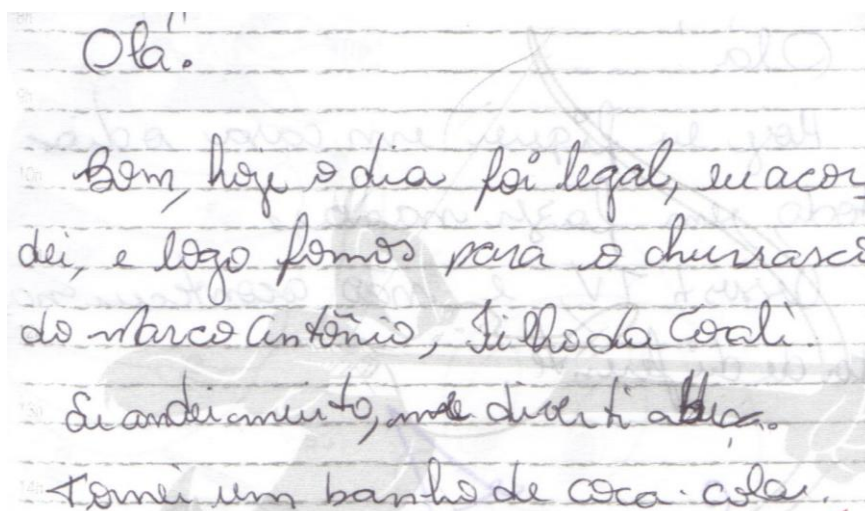 Olá!
Bom, hoje o dia foi legal, eu acor
dei, e logo fomos para o churrasco
do Marco Antônio, Filho da Corali.
Eu andei muito, me diverti a
Tomei um banho de coca-cola.